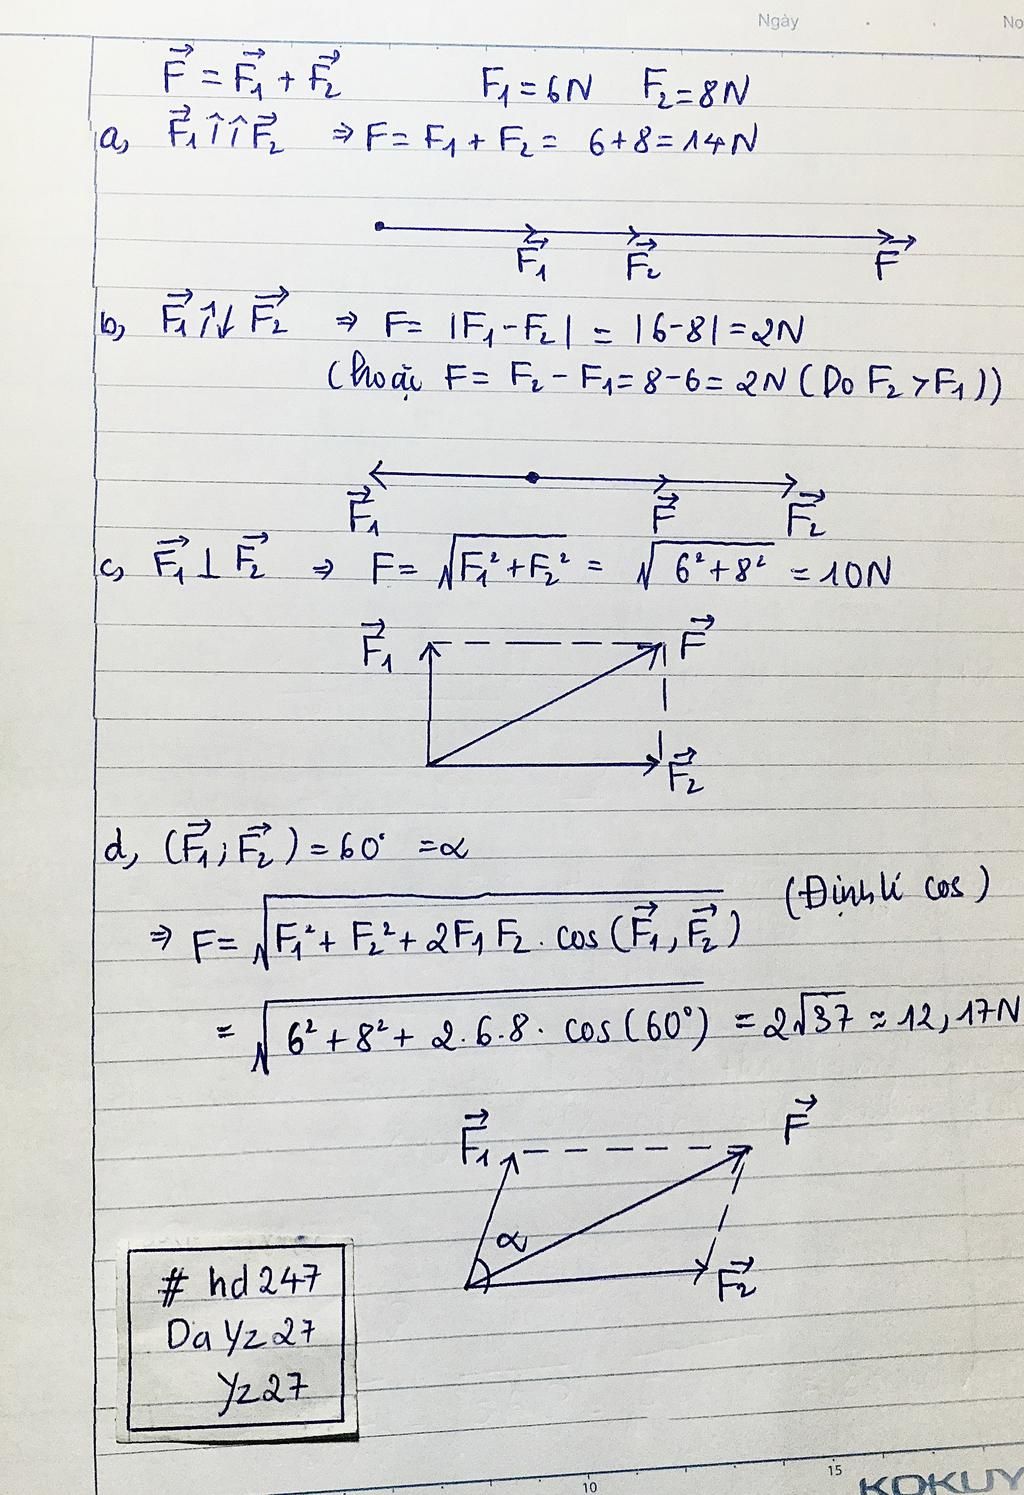 Ngày . . No
F⃗ = F⃗₁ + F⃗₂ F₁ = 6N F₂ = 8N
a, F⃗₁ ↑↑ F⃗₂ ⇒ F = F₁ + F₂ = 6 + 8 = 14N
F⃗₁ F⃗₂ F⃗
b, F⃗₁ ↑↓ F⃗₂ ⇒ F = |F₁ - F₂| = |6 - 8| = 2N
(hoặc F = F₂ - F₁ = 8 - 6 = 2N (Do F₂ > F₁))
F⃗₁ F⃗ F⃗₂
c, F⃗₁ ⊥ F⃗₂ ⇒ F = √(F₁² + F₂²) = √(6² + 8²) = 10N
F⃗₁ F⃗
F⃗₂
d, (F⃗₁; F⃗₂) = 60° = α
⇒ F = √(F₁² + F₂² + 2F₁F₂ . cos(F⃗₁, F⃗₂)) (Định lí cos)
= √(6² + 8² + 2.6.8. cos(60°)) = 2√37 ≈ 12,17N
F⃗₁ F⃗
α
F⃗₂
# hd247
Da Yz27
Yz27
10 15 KOKUY